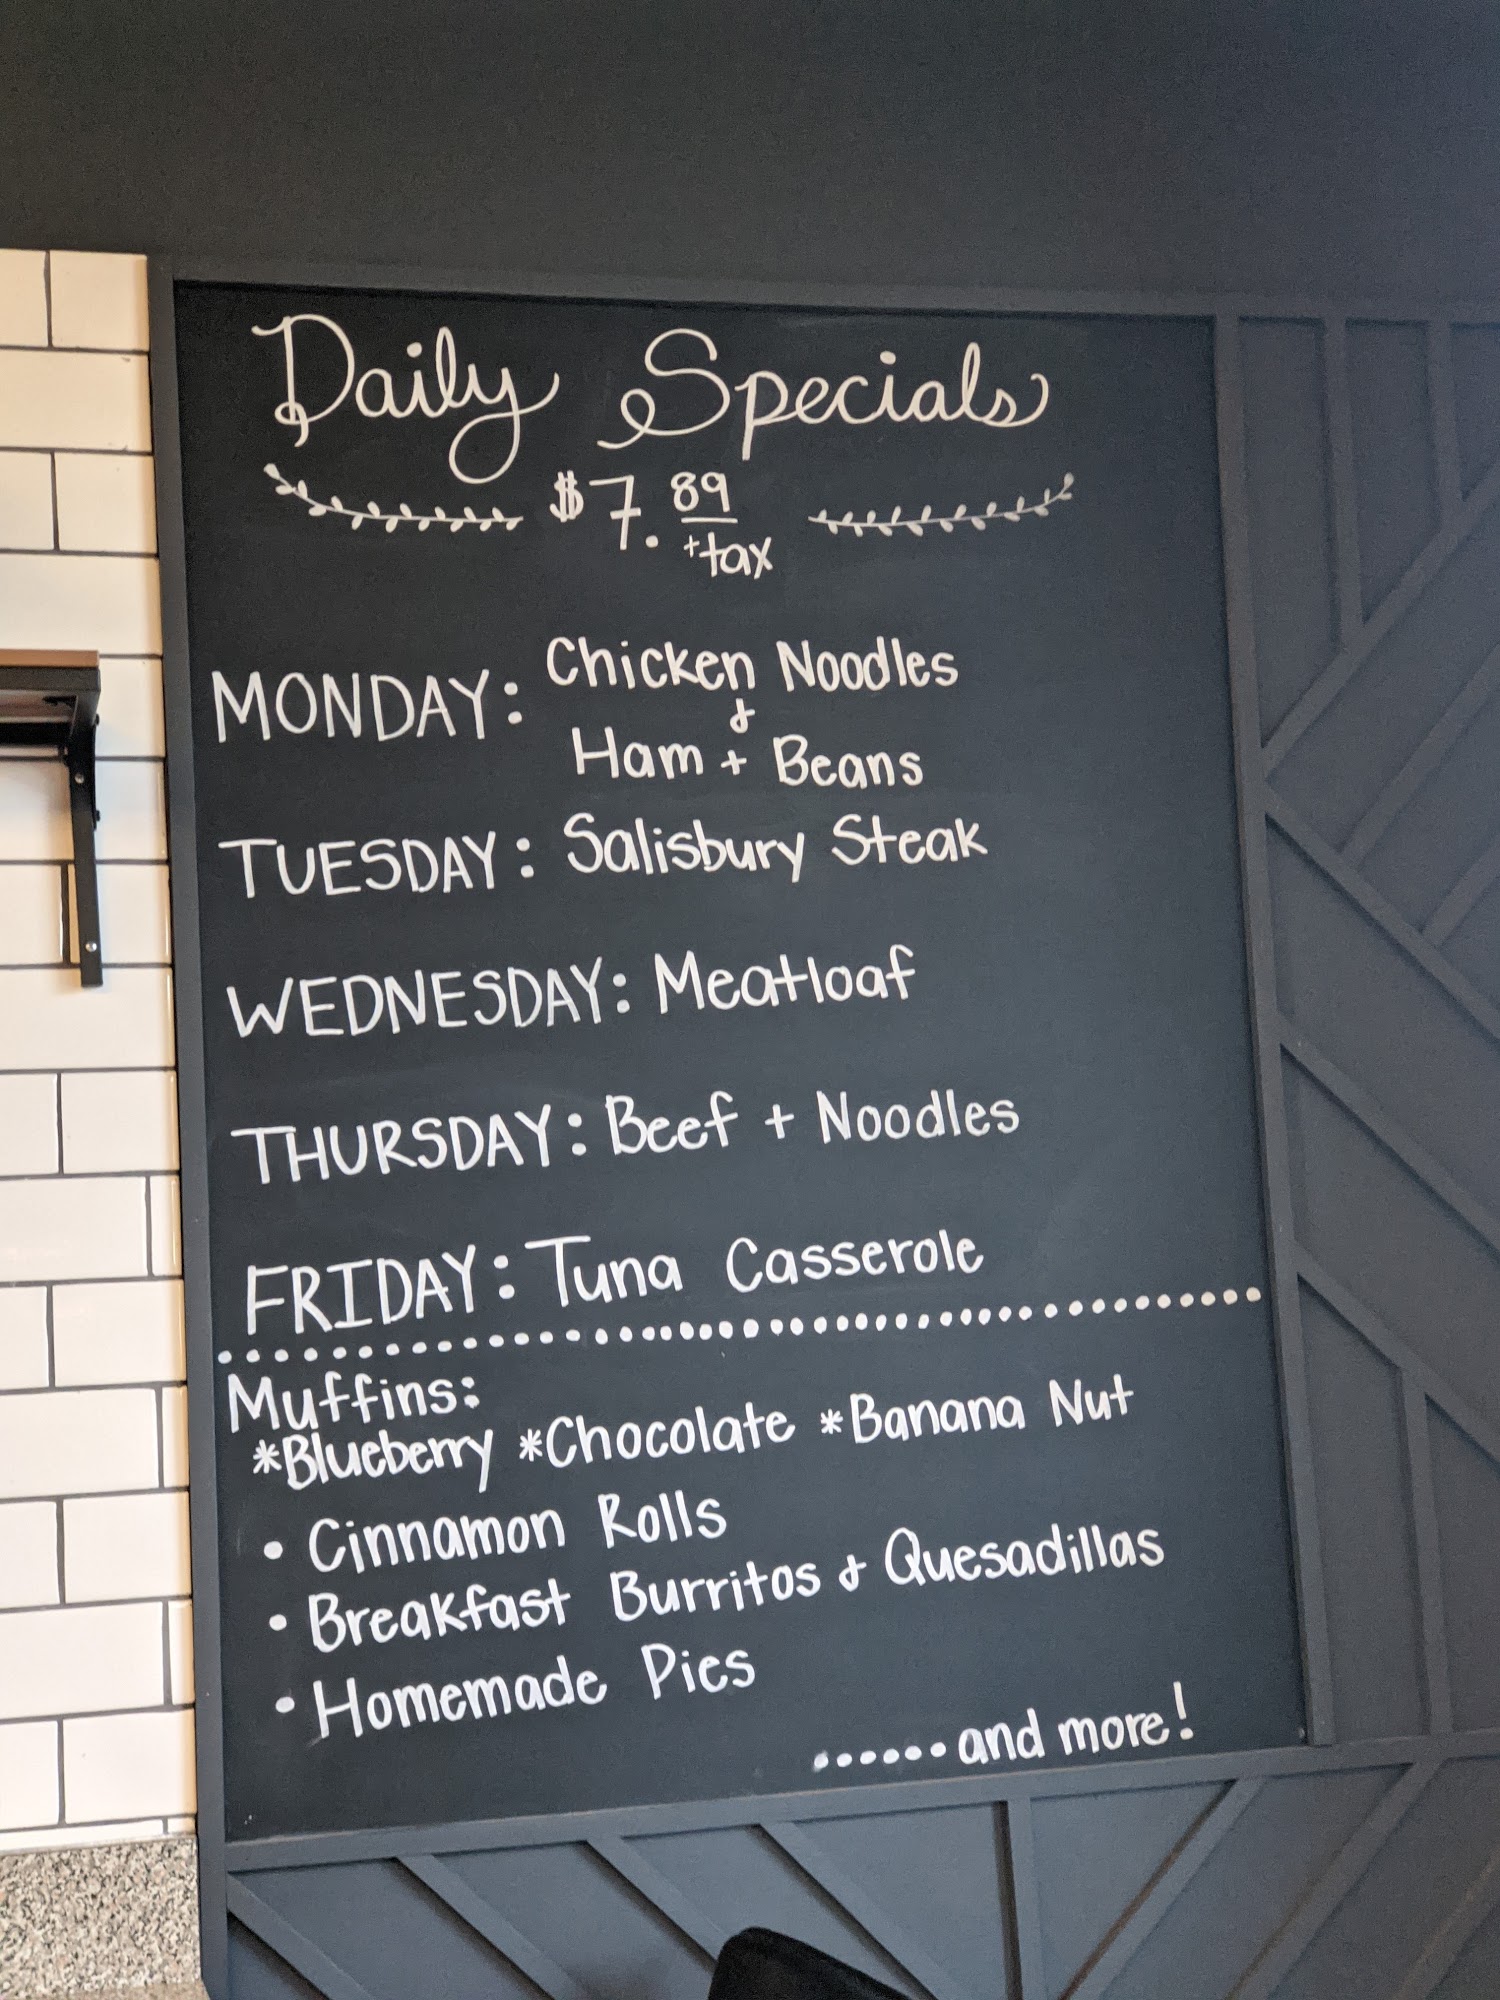 Daily Specials
$7.89
+tax
MONDAY: Chicken Noodles
&
Ham + Beans
TUESDAY: Salisbury Steak
WEDNESDAY: Meatloaf
THURSDAY: Beef + Noodles
FRIDAY: Tuna Casserole
Muffins:
*Blueberry *Chocolate *Banana Nut
• Cinnamon Rolls
• Breakfast Burritos & Quesadillas
• Homemade Pies
......and more!